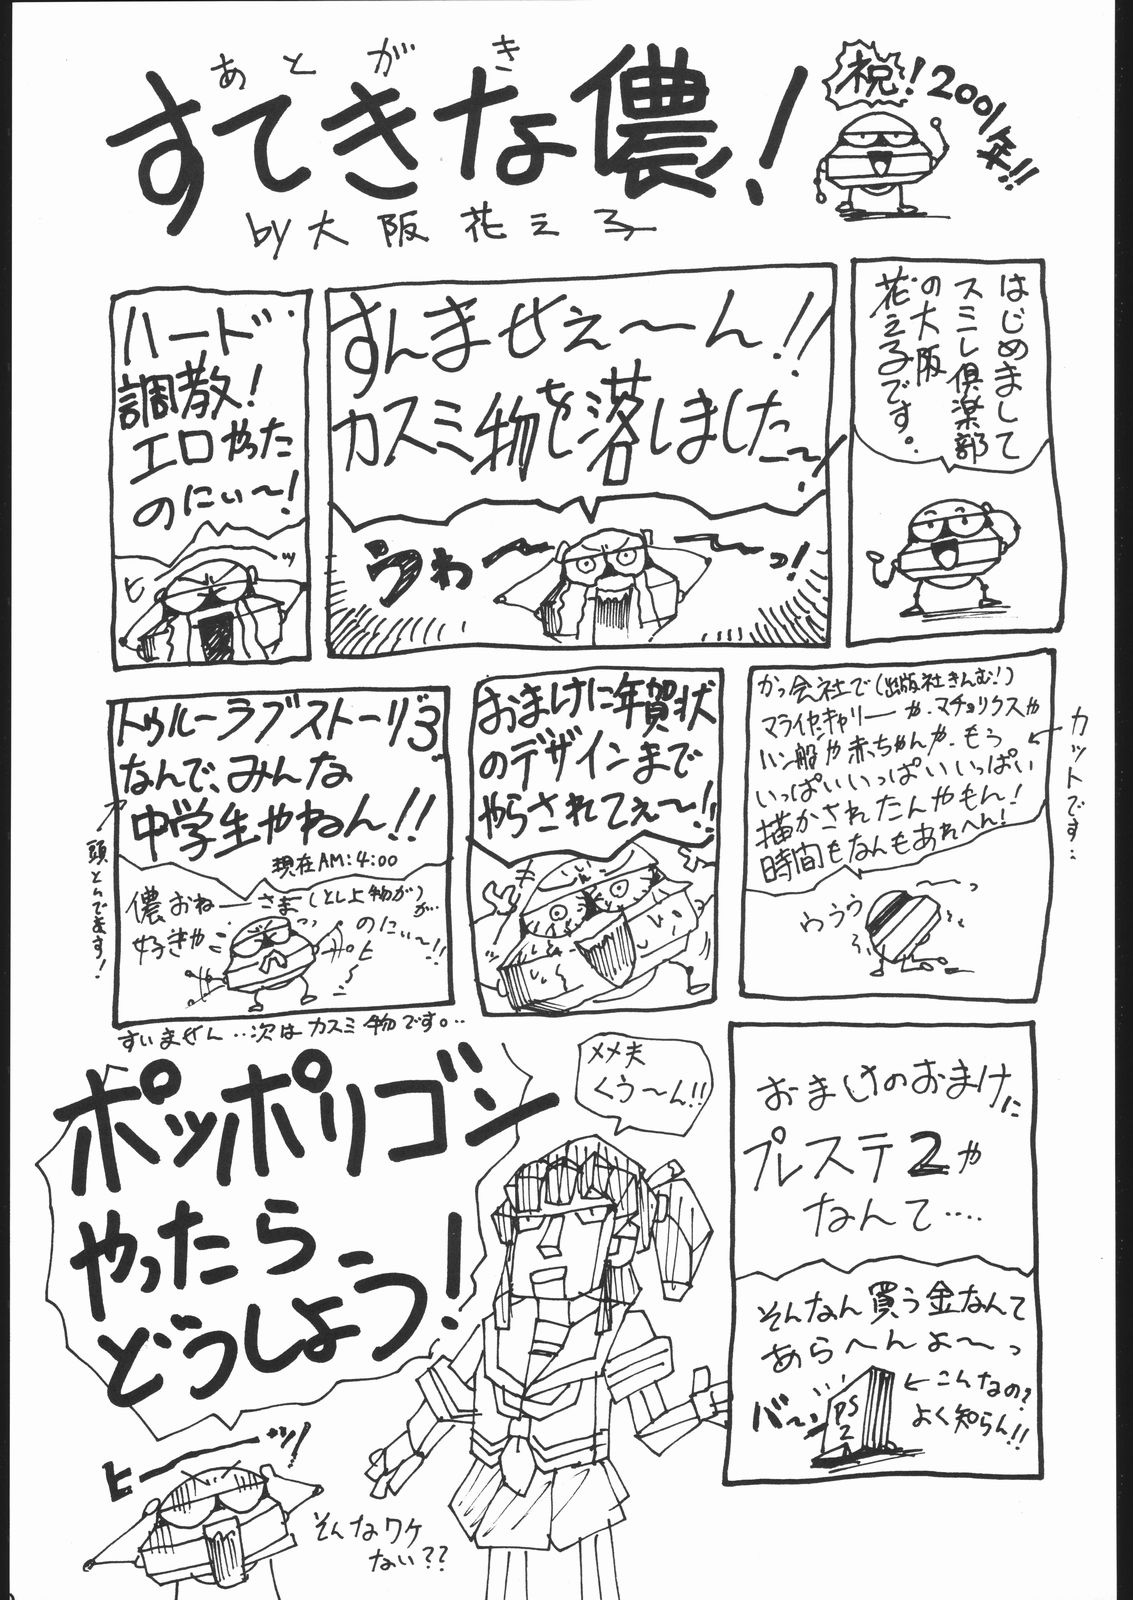 あとがき
すてきな儂!
by大阪花え子
祝!2001年!!
はじめまして
スミレ倶楽部
の大阪
花え子です。
すんませぇ〜ん!!
カスミ物を落しました〜!
うわ〜〜っ!
ハード
調教!
エロやった
のにぃ〜!
ヒーッ
かっ会社で(出版社きんむ!)
マライヤ・キャリーや、マチョリクスや
ハン船や赤ちゃんや、もう
いっぱいいっぱいいっぱい
描かされたんやもん!
時間もなんもあれへん!
カットです…
〜っ
ウゥゥ
おまけに年賀状
のデザインまで
やらされてぇ〜!!
トゥルーラブストーリー3
なんで、みんな
中学生やねん!!
現在AM:4:00
頭とんでます!
儂おねーさま(とし上物が)が…
好きや
のにぃ〜!!
すいません…次はカスミ物です。…
おまけのおまけに
プレステ2や
なんて….
そんなん買う金なんて
あらへんよ〜っ
バーン
PS
2
←こんなの?
よく知らん!!
メメ夫
くう〜ん!!
ポッポリゴン
やったら
どうしよう!
ヒーッ!
そんなワケ
ない??